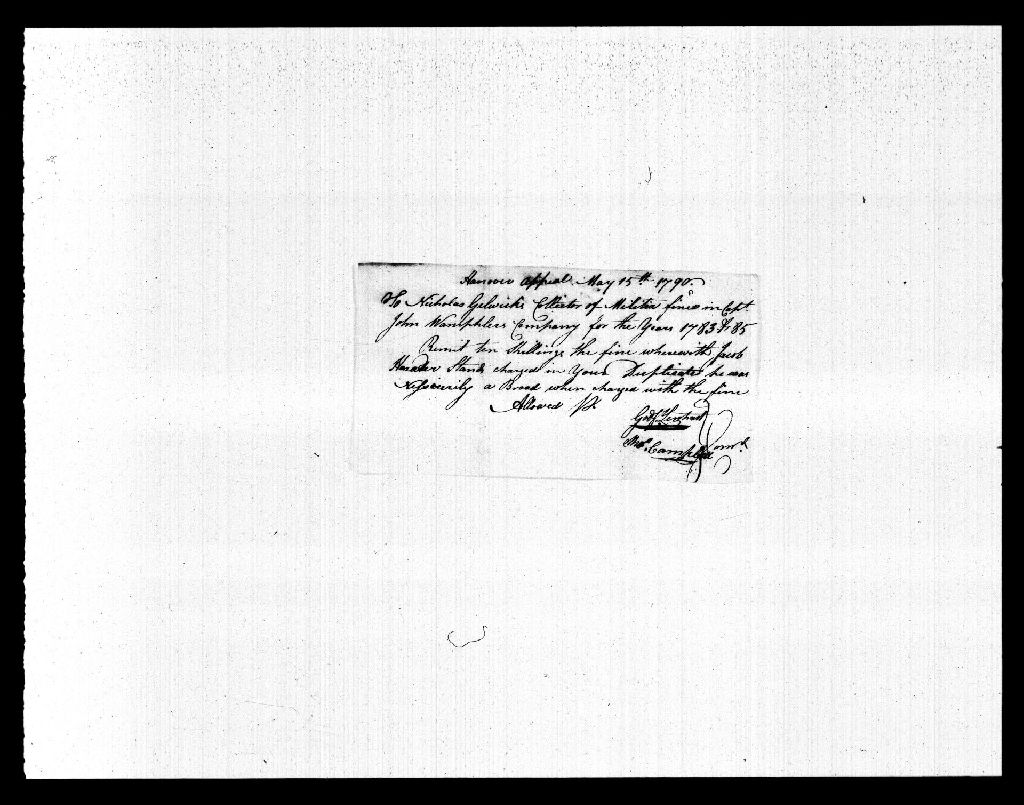 Hanover appeal May 15th 1790.
To Nicholas Gelwicks Collector of Militia fines in Capt.
John Wamphlers Company for the Years 1783 & 85
Remit ten Shillings the fine wherewith Jacob
Stands charged in Your Duplicate he was
a Broad when charged with the fine
Allowed Pr
Godf. Lenhart
Campbell Comrs.